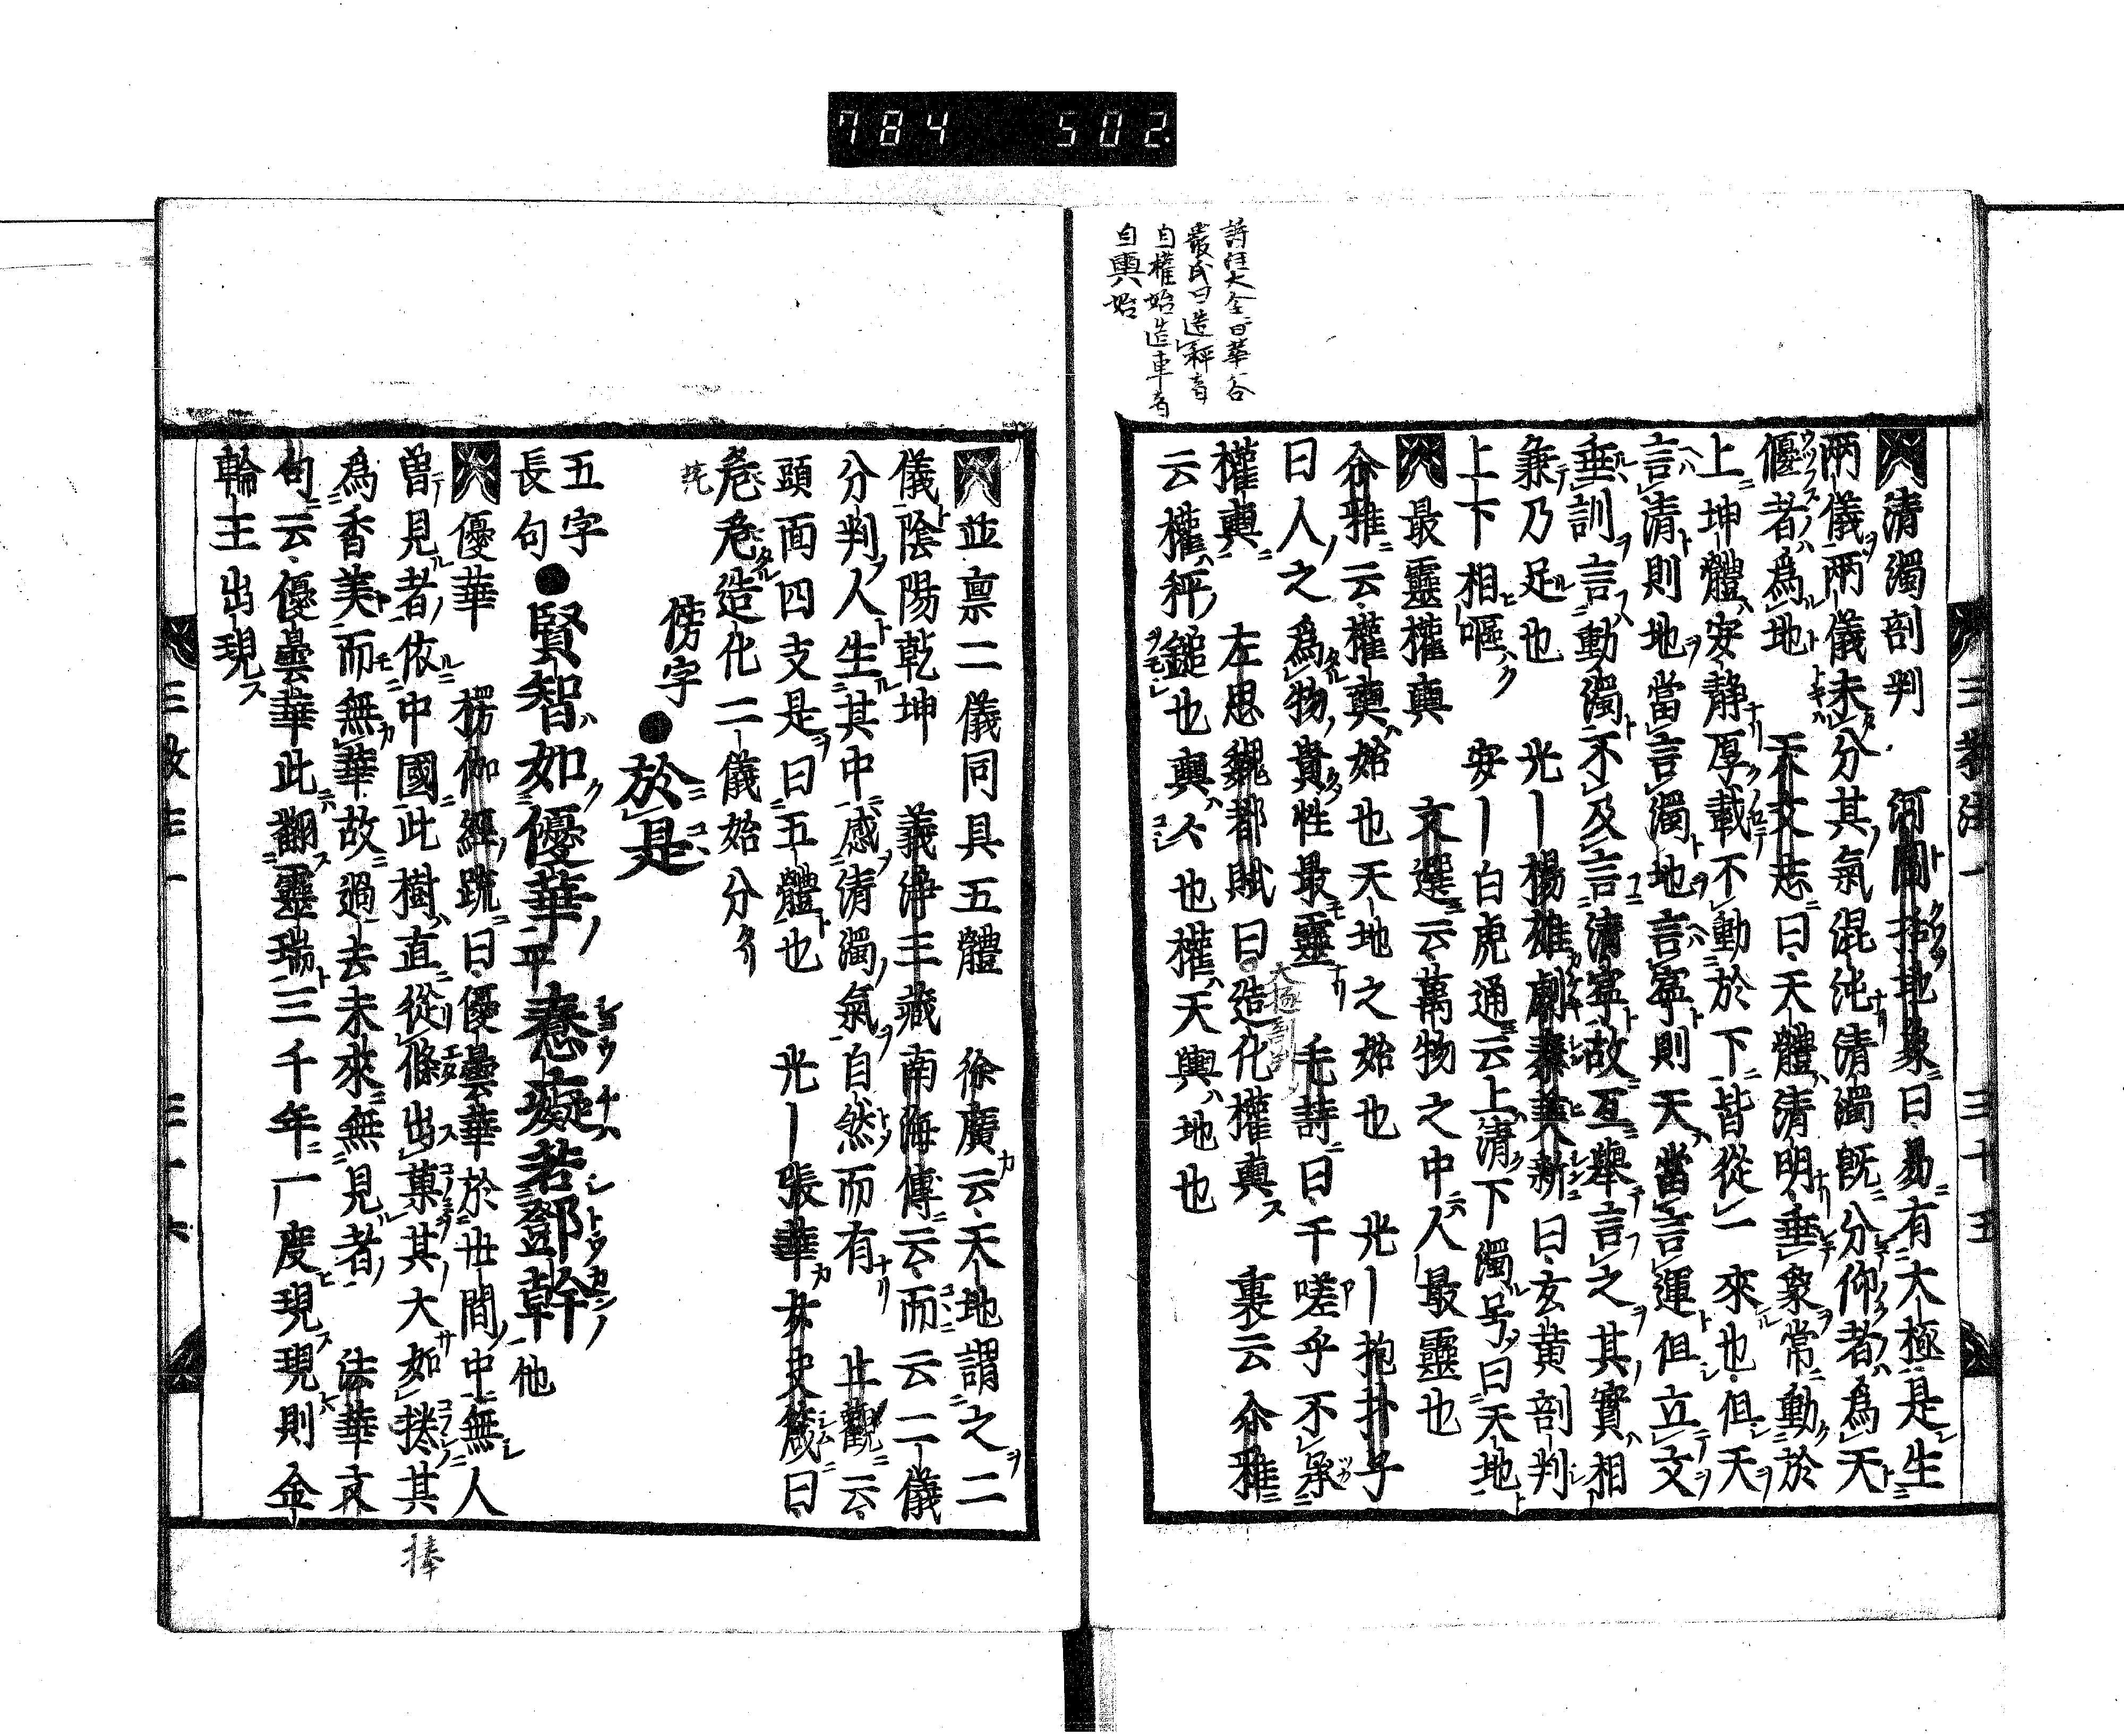 784 502.
詩經大全曰華谷
嚴氏曰造秤者
自權始造車者
自輿始
三教注一 三十五
清濁剖判 河圖括地象曰易有大極是生
兩儀兩儀未分其氣混沌清濁既分仰者為天
偃者為地 天文志曰天體清明垂象常動於
上坤體安靜厚載不動於下皆從一來也但天
言清則地當言濁地言寧則天當言運但立文
垂訓言動濁不及言清寧故互舉言之其實相
兼乃足也 光―楊雄劇秦美新曰玄黃剖判
上下相嘔 安―白虎通云上清下濁号曰天地
最靈權輿 文選云萬物之中人最靈也
尒雅云權輿始也天地之始也 光―抱朴子
曰人之為物貴性最靈 毛詩曰千嗟乎不承
權輿 左思魏都賦曰造化權輿 裏云尒雅
云權秤鎚也輿人也權天輿地也
並禀二儀同具五體 徐廣云天地謂之二
儀陰陽乾坤 義淨三藏南海傳云而云二儀
分判人生其中感清濁氣自然而有 止觀云
頭面四支是曰五體也 光―張華女史箴曰
庬庬造化二儀始分
傍字●於是
五字
長句●賢智如優華平惷癡若鄧幹他
優華 楞伽經疏曰優曇華於世間中無人
曾見者依中國此樹直從條出菓其大如捺其
為香美而無華故過去未來無見者 法華文
句云優曇華此翻靈瑞三千年一度現現則金
輪王出現
棒